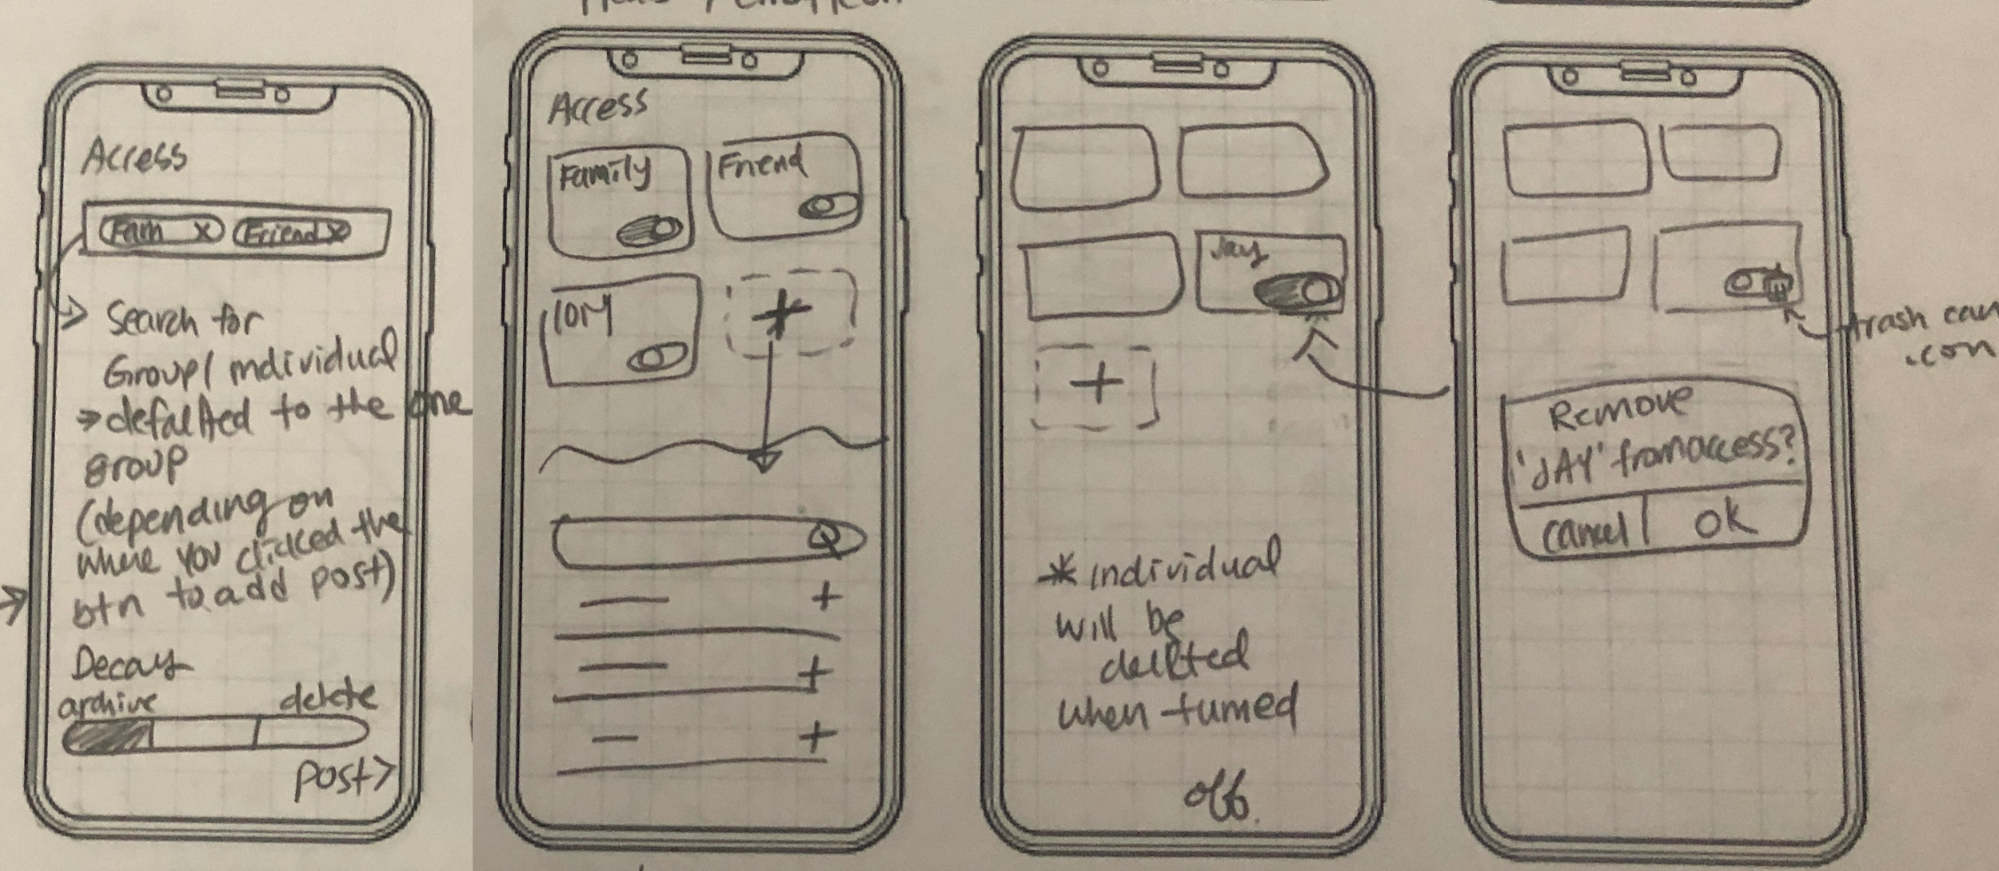 Access
Fam X Friend X
→ Search for
Group/individual
→ defalted to the one
group
(depending on
where you clicked the
btn to add post)
Decay
archive delete
post>
Access
Family
Friend
+
+
+
+
Jay
+
* individual
will be
deleted
when turned
off.
trash can
icon
Remove
'JAY' from access?
cancel OK